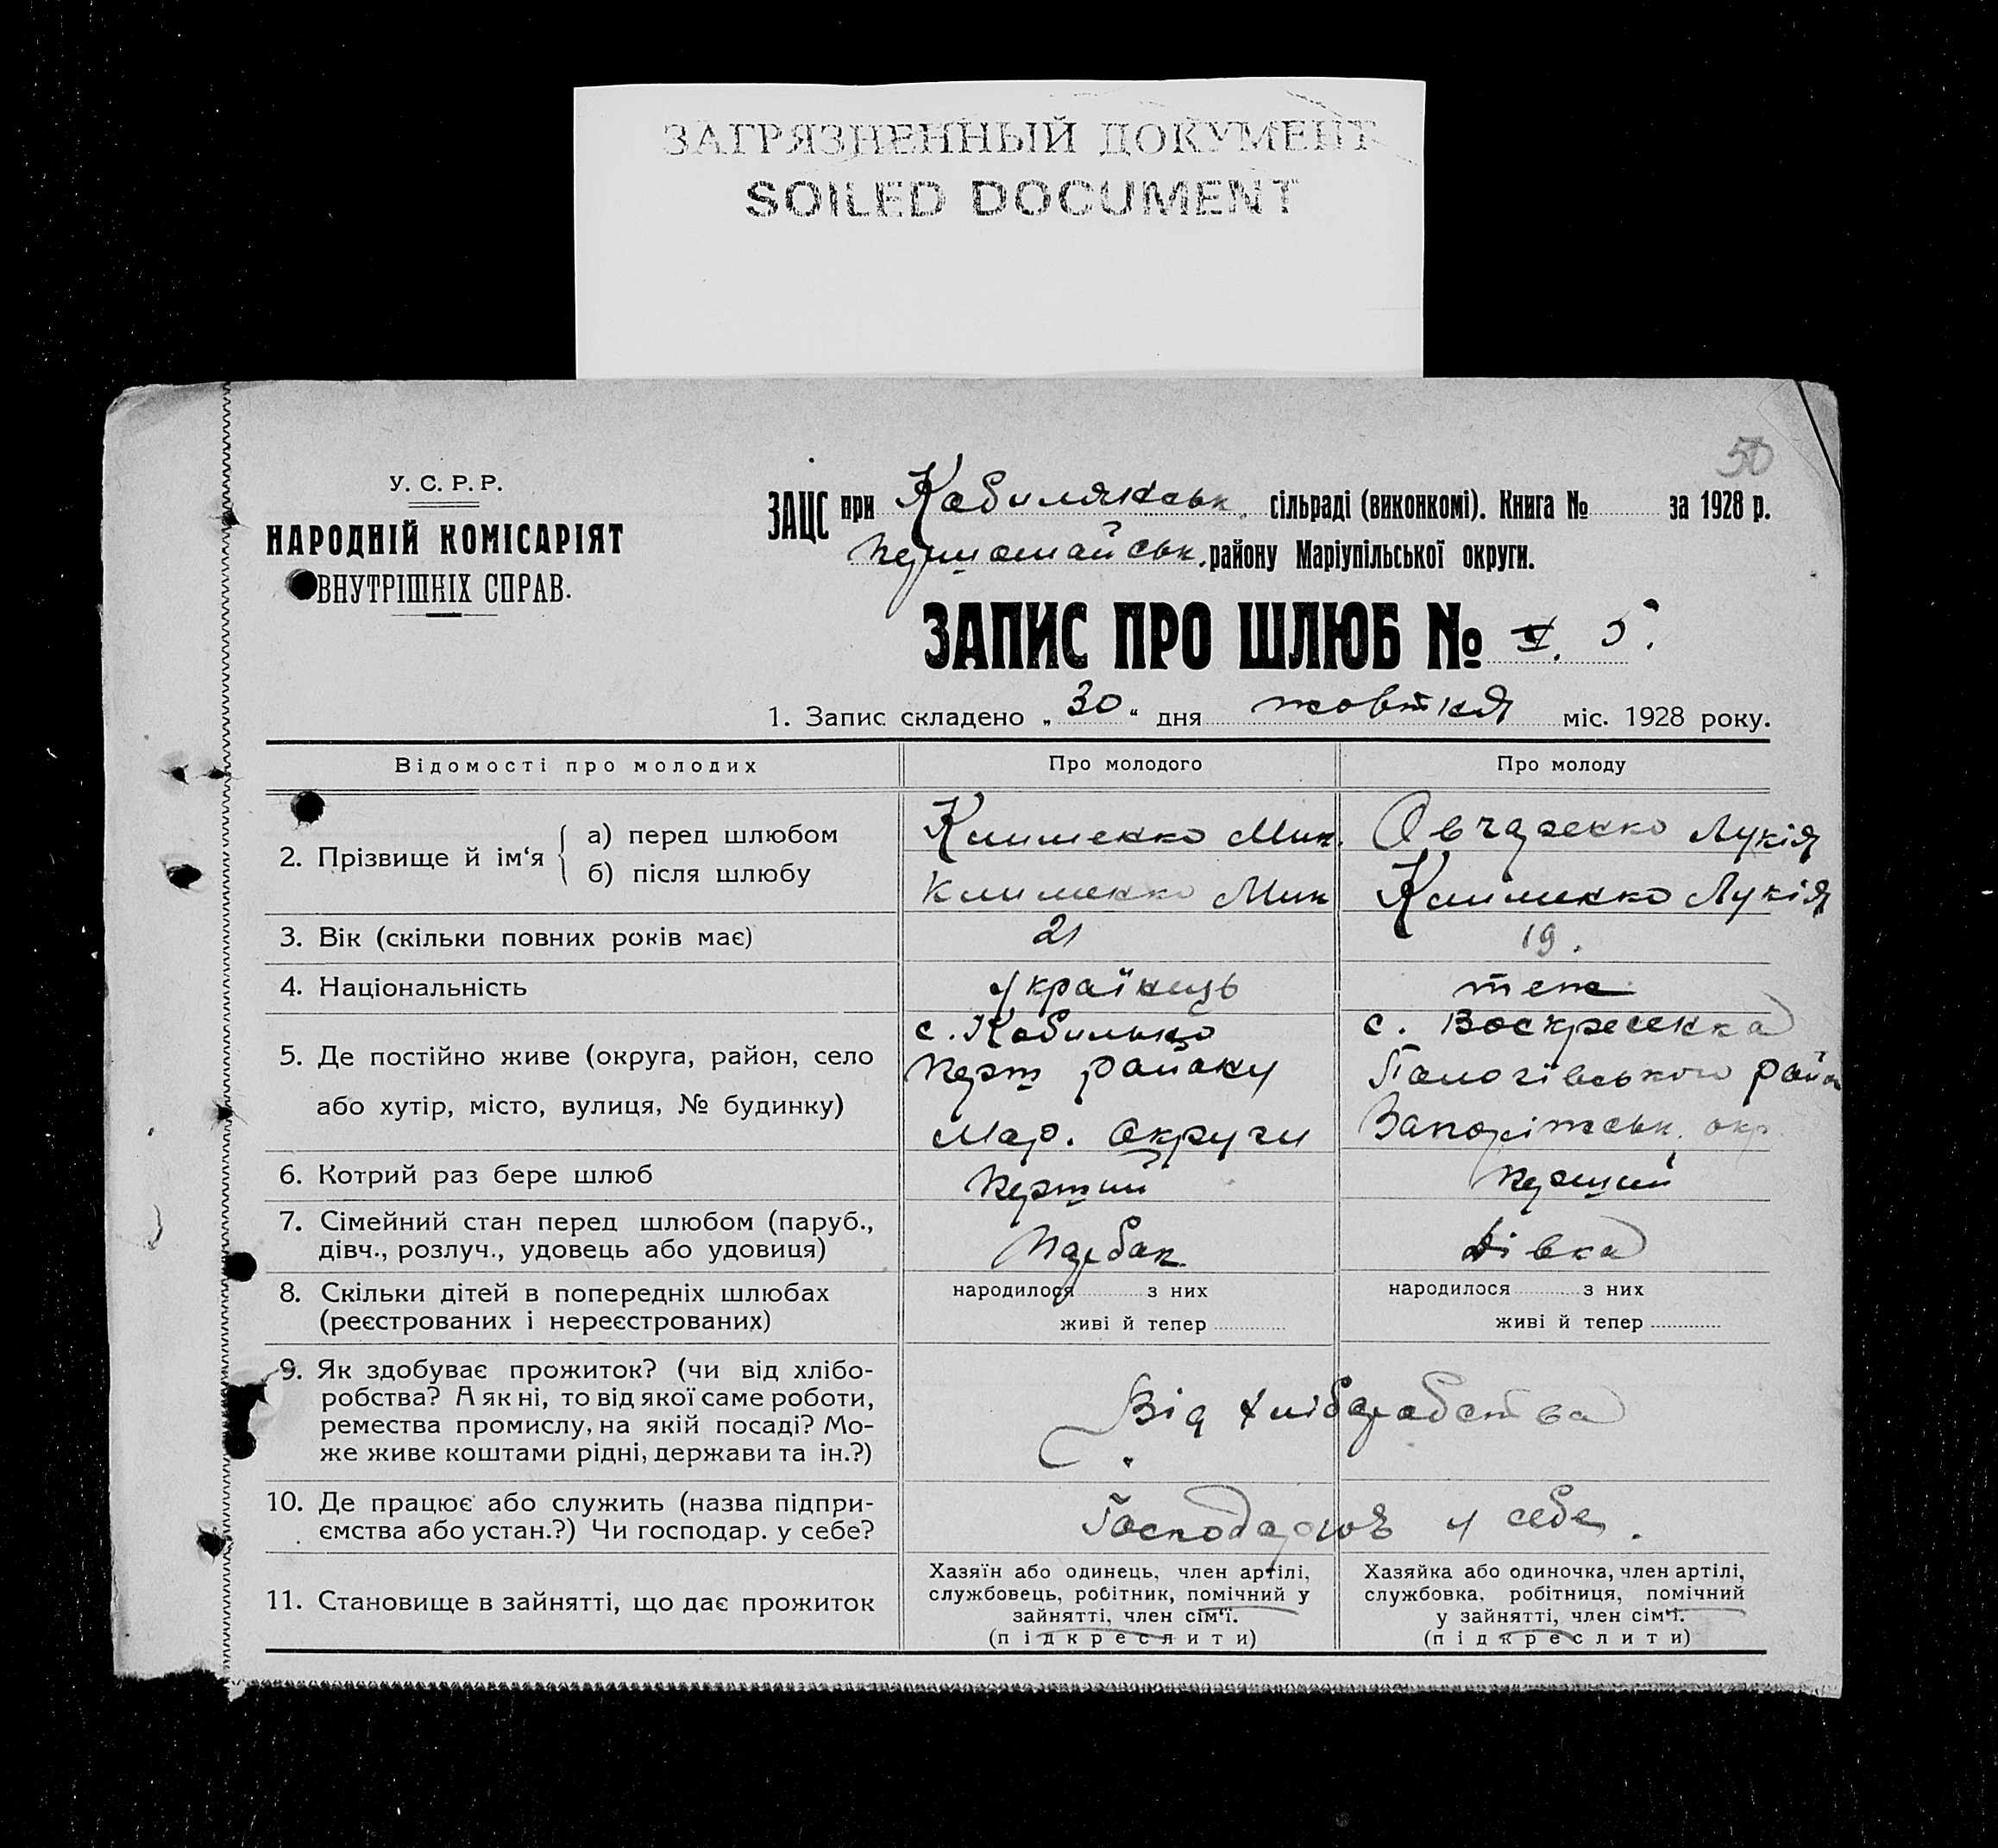 ЗАГРЯЗНЕННЫЙ ДОКУМЕНТ
SOILED DOCUMENT
50
У. С. Р. Р.
НАРОДНІЙ КОМІСАРІЯТ
ВНУТРІШНІХ СПРАВ.
ЗАЦС при Кобиляцьк. сільраді (виконкомі). Книга № за 1928 р.
Першомайськ. району Маріупільської округи.
ЗАПИС ПРО ШЛЮБ № 5.
1. Запис складено „30“ дня жовтня міс. 1928 року.
Відомості про молодих Про молодого Про молоду
2. Прізвище й ім‘я
а) перед шлюбом Клименко Мик. Овчаренко Лукія
б) після шлюбу Клименко Мик Клименко Лукія
3. Вік (скільки повних років має) 21 19.
4. Національність Українець теж
5. Де постійно живе (округа, район, село
або хутір, місто, вулиця, № будинку)
с. Кобильно
Перш району
Мар. Округи
с. Воскресенка
Пологівського район
Запоріжськ. окр.
6. Котрий раз бере шлюб Перший Перший
7. Сімейний стан перед шлюбом (паруб.,
дівч., розлуч., удовець або удовиця) Парбак Дівка
8. Скільки дітей в попередніх шлюбах
(реєстрованих і нереєстрованих)
народилося з них
живі й тепер
народилося з них
живі й тепер
9. Як здобуває прожиток? (чи від хлібо-
робства? А як ні, то від якої саме роботи,
ремества промислу, на якій посаді? Мо-
же живе коштами рідні, держави та ін.?)
Від хліборобства
10. Де працює або служить (назва підпри-
ємства або устан.?) Чи господар. у себе?
Господарюъ у себе.
11. Становище в зайнятті, що дає прожиток
Хазяїн або одинець, член артілі,
службовець, робітник, помічний у
зайнятті, член сім‘ї.
(підкреслити)
Хазяйка або одиночка, член артілі,
службовка, робітниця, помічний
у зайнятті, член сім‘ї.
(підкреслити)